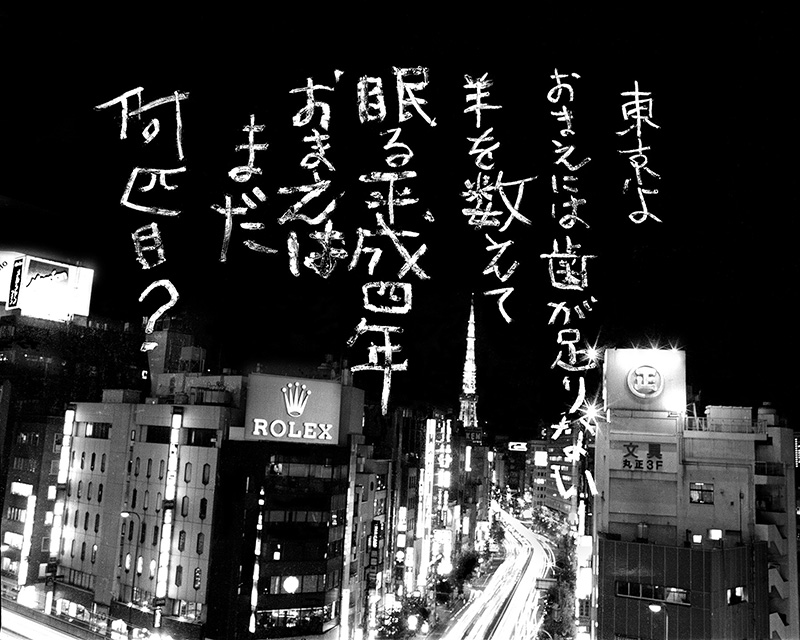 東京よ
おまえには歯が足りない
羊を数えて
眠る平成四年
おまえは
まだ
何匹目?
ROLEX
正
文具
丸正3F